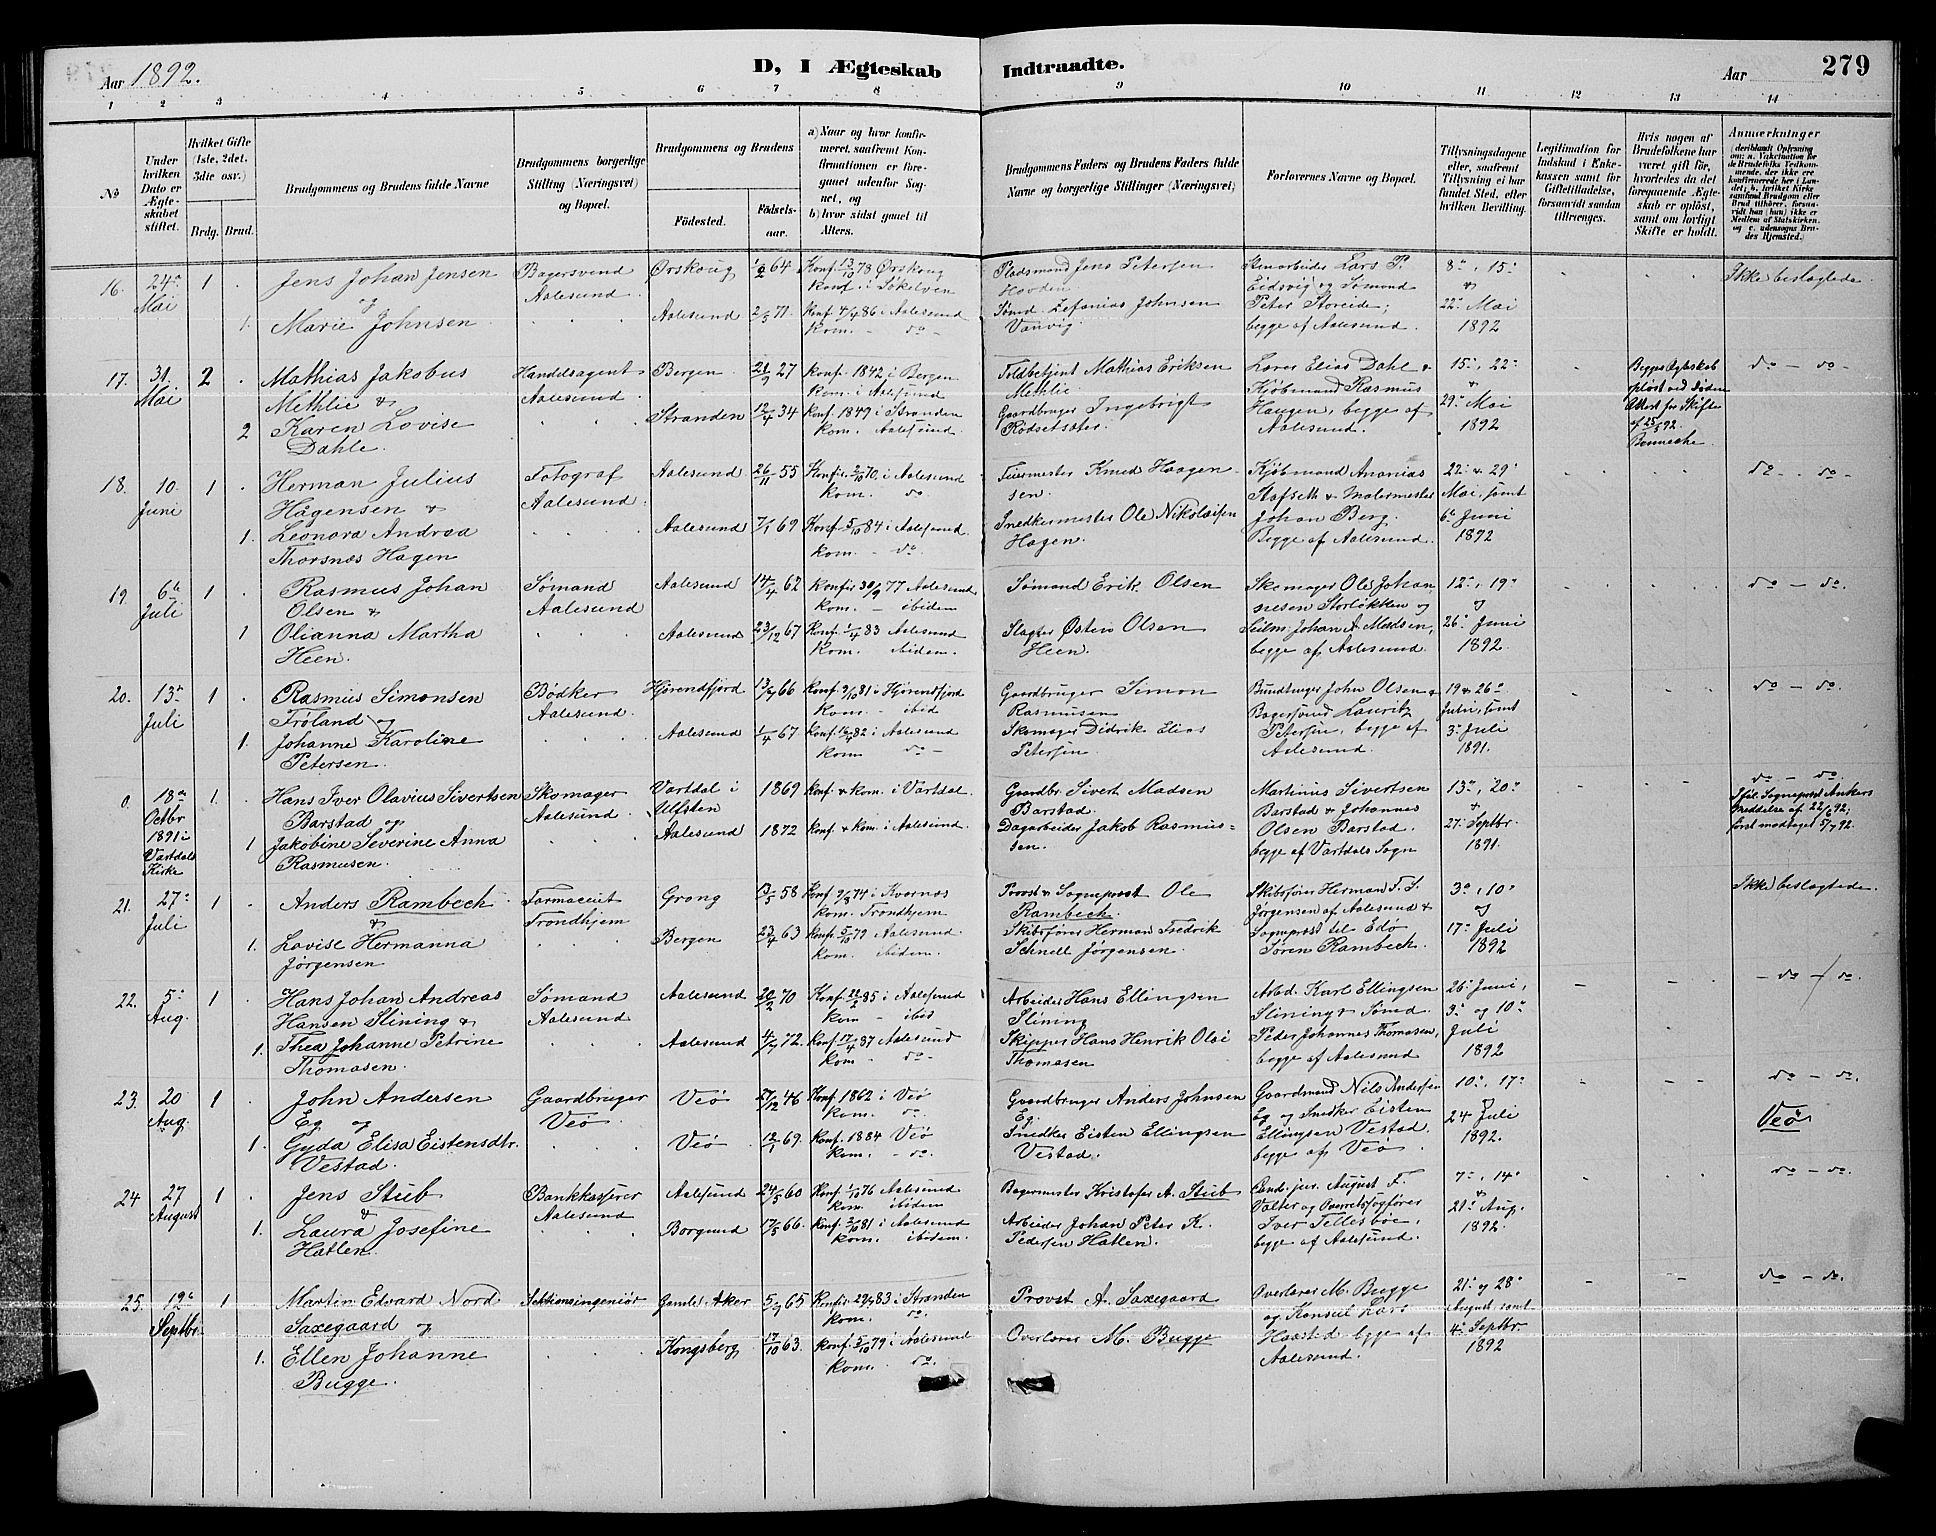 Aar 1892.
D, I Ægteskab
Indtraadte.
Aar
279
1 2 3 4 5 6 7 8 9 10 11 12 13 14
№
Under hvilken Dato er Ægteskabet stiftet.
Hvilket Gifte (1ste, 2det, 3die osv.)
Brdg. Brud.
Brudgommens og Brudens fulde Navne
Brudgommens borgerlige Stilling (Næringsvei) og Bopæl.
Brudgommens og Brudens
Födested.
Födselsaar.
a) Naar og hvor konfirmeret, saafremt Konfirmationen er foregaaet udenfor Sognet, og
b) hvor sidst gaaet til Alters.
Brudgommens Faders og Brudens Faders fulde Navne og borgerlige Stillinger (Næringsvei)
Forlovernes Navne og Bopæl.
Tillysningsdagene eller, saafremt Tillysning ei har fundet Sted, efter hvilken Bevilling.
Legitimation for Indskud i Enkekassen samt for Giftetilladelse, forsaavidt saadan tiltrænges.
Hvis nogen af Brudefolkene har været gift för, hvorledes da det foregaaende Ægteskab er oplöst, samt om lovligt Skifte er holdt.
Anmærkninger
16. 24de Mai 1
Jens Johan Jensen
og
1. Marie Johnsen
Bagersvend
Aalesund.
Ørskoug 64
Aalesund 2/5 71.
Konf. 13/10 78 Ørskoug
Kom. i Søkelven
Konf. 4/4 86 i Aalesund
Kom. - do -
Pladsmand Jens Petersen
Hovden
Sømd. Zefanias Johnsen
Vanvig.
Stenarbeider Lars P.
Eidsvig og Sømand
Peter Storeide,
begge af Aalesund.
8de, 15de
&
22de Mai
1892
Ikke beslegtede
17. 31. Mai 2
Mathias Jakobus
Methlie &
2 Karen Lovise
Dahle.
Handelsagent
Aalesund.
Bergen 27
Stranden 34
Konf. 1842 i Bergen
Kom. i Aalesund
Konf. 1849 i Stranden
Kom. Aalesund.
Toldbetjent Mathias Eriksen
Methlie
Gaardbruger Ingebrigt
Rødsetsæter.
Lærer Elias Dahle &
Kjøbmand Rasmus
Haugen, begge af
Aalesund.
15de, 22de
&
29de Mai
1892
Begges Egteskab
opløst ved Døden
Attest for Skifte
af 25/5 92.
Bennecke.
do - do -
18. 10. Juni 1
Herman Julius
Hågensen &
1. Leonora Andrea
Thorsnæs Hagen
Fotograf
Aalesund.
Aalesund 26/11 55
Aalesund 7/1 69
Konfir. 2/10 70. i Aalesund
Kom. do
Konf. 5/10 84 i Aalesund.
Kom. - do.
Feiermester Knud Haagen-
sen.
Snedkermester Ole Nikolaisen
Hagen.
Kjøbmand Ananias
Stafseth & Malermester
Johan Berg.
Begge af Aalesund.
22de & 29de
Mai, samt
6te Juni
1892
do - do -
19. 6te Juli 1
Rasmus Johan
Olsen &
1 Olianna Martha
Heen.
Sømand
Aalesund
Aalesund 14/4 62
Aalesund 23/12 67
Konfir. 30/9 77 Aalesund
Kom. - ibidem
Konf. 1/4 83 Aalesund
Kom. ibidem.
Sømand Erik Olsen
Slagter Østein Olsen
Heen.
Skomager Ole Johan-
nesen Storløkken og
Seilm. Johan A. Madsen,
begge af Aalesund.
12te, 19de
og
26de Juni
1892.
do - do.
20. 13de Juli 1
Rasmus Simonsen
Frøland og
1. Johanne Karoline
Petersen.
Bødker
Aalesund.
Hjørendfjord 66
Aalesund 1/4 67.
Konf. 2/10 81 i Hjørendfjord
Kom. - ibid
Konf. 16/4 82 i Aalesund
Kom do -
Gaardbruger Simon
Rasmussen
Skomager Didrik Elias
Petersen
Bundtager John Olsen &
Bagersvend Lauritz
Petersen, begge af
Aalesund.
19 & 26de
Juni, samt
3de Juli
1891.
do - do.
0. 18de Octbr 1891 i Vartdals Kirke 1.
Hans Iver Olavius Sivertsen
Barstad og
1 Jakobine Severine Anna
Rasmusen.
Skomager
Aalesund.
Vartdal i
Ulfsten 1869
Aalesund 1872
Konf. & Kom. i Vartdal.
Konf. & Kom. i Aalesund.
Gaardbr. Sivert Madsen
Barstad.
Dagarbeider Jakob Rasmus-
sen.
Martinus Sivertsen
Barstad & Johannes
Olsen Barstad.
begge af Vartdals Sogn
13de, 20de
&
27de Septbr.
1891.
do - do.
Iføl. Sogneprest Ankers
meddelse af 22/6 92,
først modtaget 5/7 92.
21. 27de Juli 1
Anders Rambech
&
1. Lovise Hermanna
Jørgensen
Farmaceut
Trondhjem
Grong 13/5 58
Bergen 23/4 63
Konf. 74 i Kvernæs
Kom. Trondhjem
Konf. 5/10 79 Aalesund.
Kom. ibidem.
Provst & Sogneprest Ole
Rambech.
Skibsfører Herman Fredrik
Schnell Jørgensen.
Skibsfører Herman F. S.
Jørgensen af Aalesund &
Sogneprest til Edø
Søren Rambech.
3de, 10de
og
17de Juli
1892
Ikke beslegtede.
22. 5te Aug. 1
Hans Johan Andreas
Hansen Slining &
1. Thea Johanne Petrine
Thomasen.
Sømand
Aalesund
Aalesund 20/2 70
Aalesund 72.
Konf. 85 i Aalesund
Kom - ibid
Konf. 17/4 87 Aalesund
Kom - do -
Arbeider Hans Ellingsen
Slining
Skipper Hans Henrik Olai
Thomasen
Arbd. Karl Ellingsen
Slining & Sømd.
Peder Johannes Thomasen,
begge af Aalesund
26de Juni,
3de og 10de
Juli
1892
- do - do.
23. 20 Aug. 1
John Andersen
Eg og
1. Gyda Elisa Eistensdtr.
Vestad.
Gaardbruger
Veø
Veø 27/12 46
Veø 69.
Konf. 1862 i Veø
Kom. do.
Konf. 1884 Veø
Kom. - do.
Gaardbruger Anders Johnsen
Eg.
Snedker Eisten Ellingsen
Vestad.
Gaardmand Nils Andersen
Eg og Snedker Eisten
Ellingsen Vestad.
begge af Veø
10de, 17de
&
24 Juli
1892.
do - do.
Veø
24 27 August 1
Jens Stub
&
1. Laura Josefine
Hatlen.
Bankkasserer
Aalesund
Aalesund 24/5 60
Borgund 17/5 66.
Konf. 1/10 76 Aalesund
Kom. ibidem
Konf. 2/10 81 i Aalesund
Kom. ibidem.
Bagermester Kristofer A. Stub
Arbeider Johan Peter K.
Pedersen Hatlen.
Cand. jur. August F.
Valter og Overretssagfører
Iver Tellesbøe,
begge af Aalesund.
7de, 14de
&
21de Aug.
1892.
do - do.
25. 12te Septbr. 1
Martin Edvard Nord
Saxegaard og
1. Ellen Johanne
Bugge.
Sektionsingeniør
Gamle Aker 65
Kongsberg 17/10 63.
Konfir. 83 i Stranden
Kom. do.
Konf. 5/10 79 i Aalesund
Kom. do.
Provst A. Saxegaard
Overlærer M. Bugge
Overlærer M. Bugge
og Konsul Lars
Haastad begge af
Aalesund.
21de og 28de
August samt
4de Septbr.
1892
do - do.